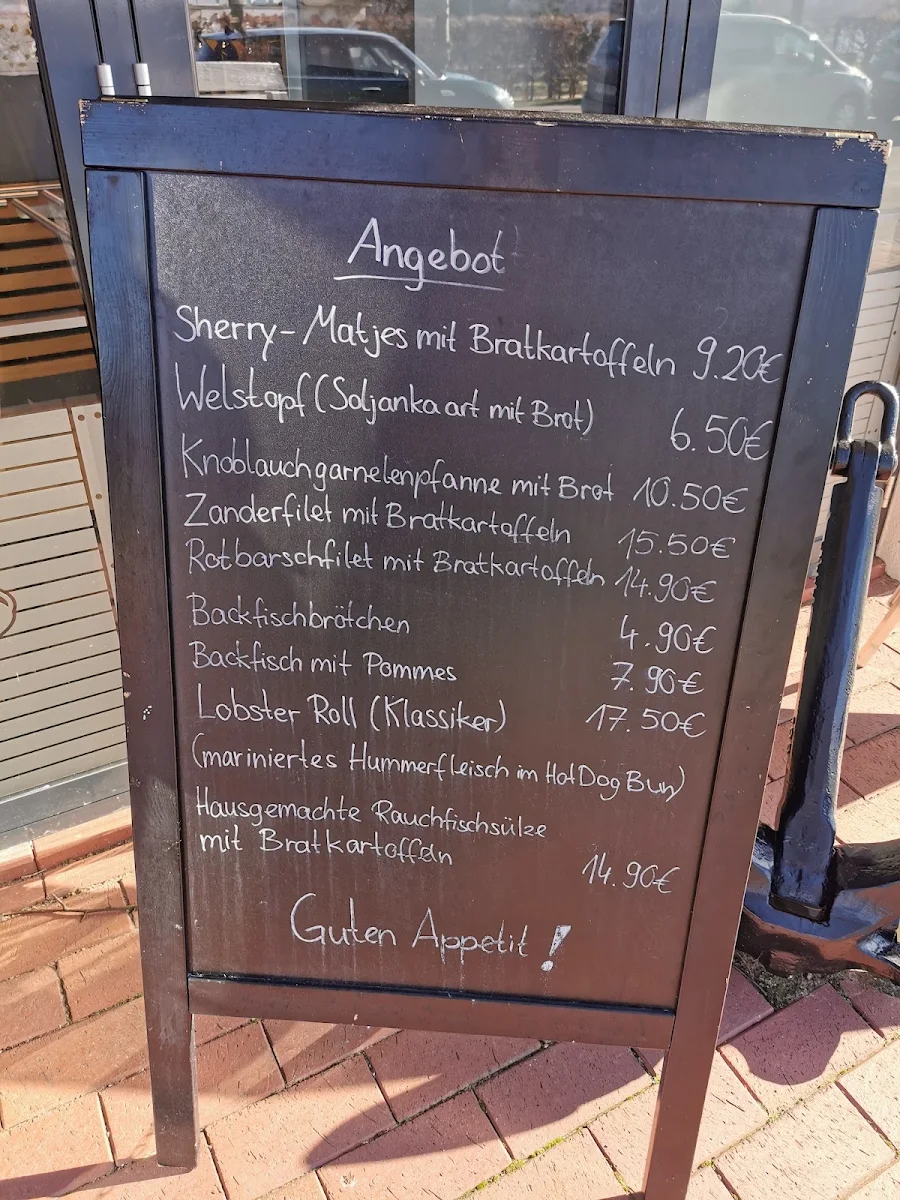 Angebot
Sherry-Matjes mit Bratkartoffeln 9.20€
Welstopf (Soljanka art mit Brot) 6.50€
Knoblauchgarnelenpfanne mit Brot 10.50€
Zanderfilet mit Bratkartoffeln 15.50€
Rotbarschfilet mit Bratkartoffeln 14.90€
Backfischbrötchen 4.90€
Backfisch mit Pommes 7.90€
Lobster Roll (Klassiker) 17.50€
(mariniertes Hummerfleisch im Hot Dog Bun)
Hausgemachte Rauchfischsülze
mit Bratkartoffeln 14.90€
Guten Appetit!